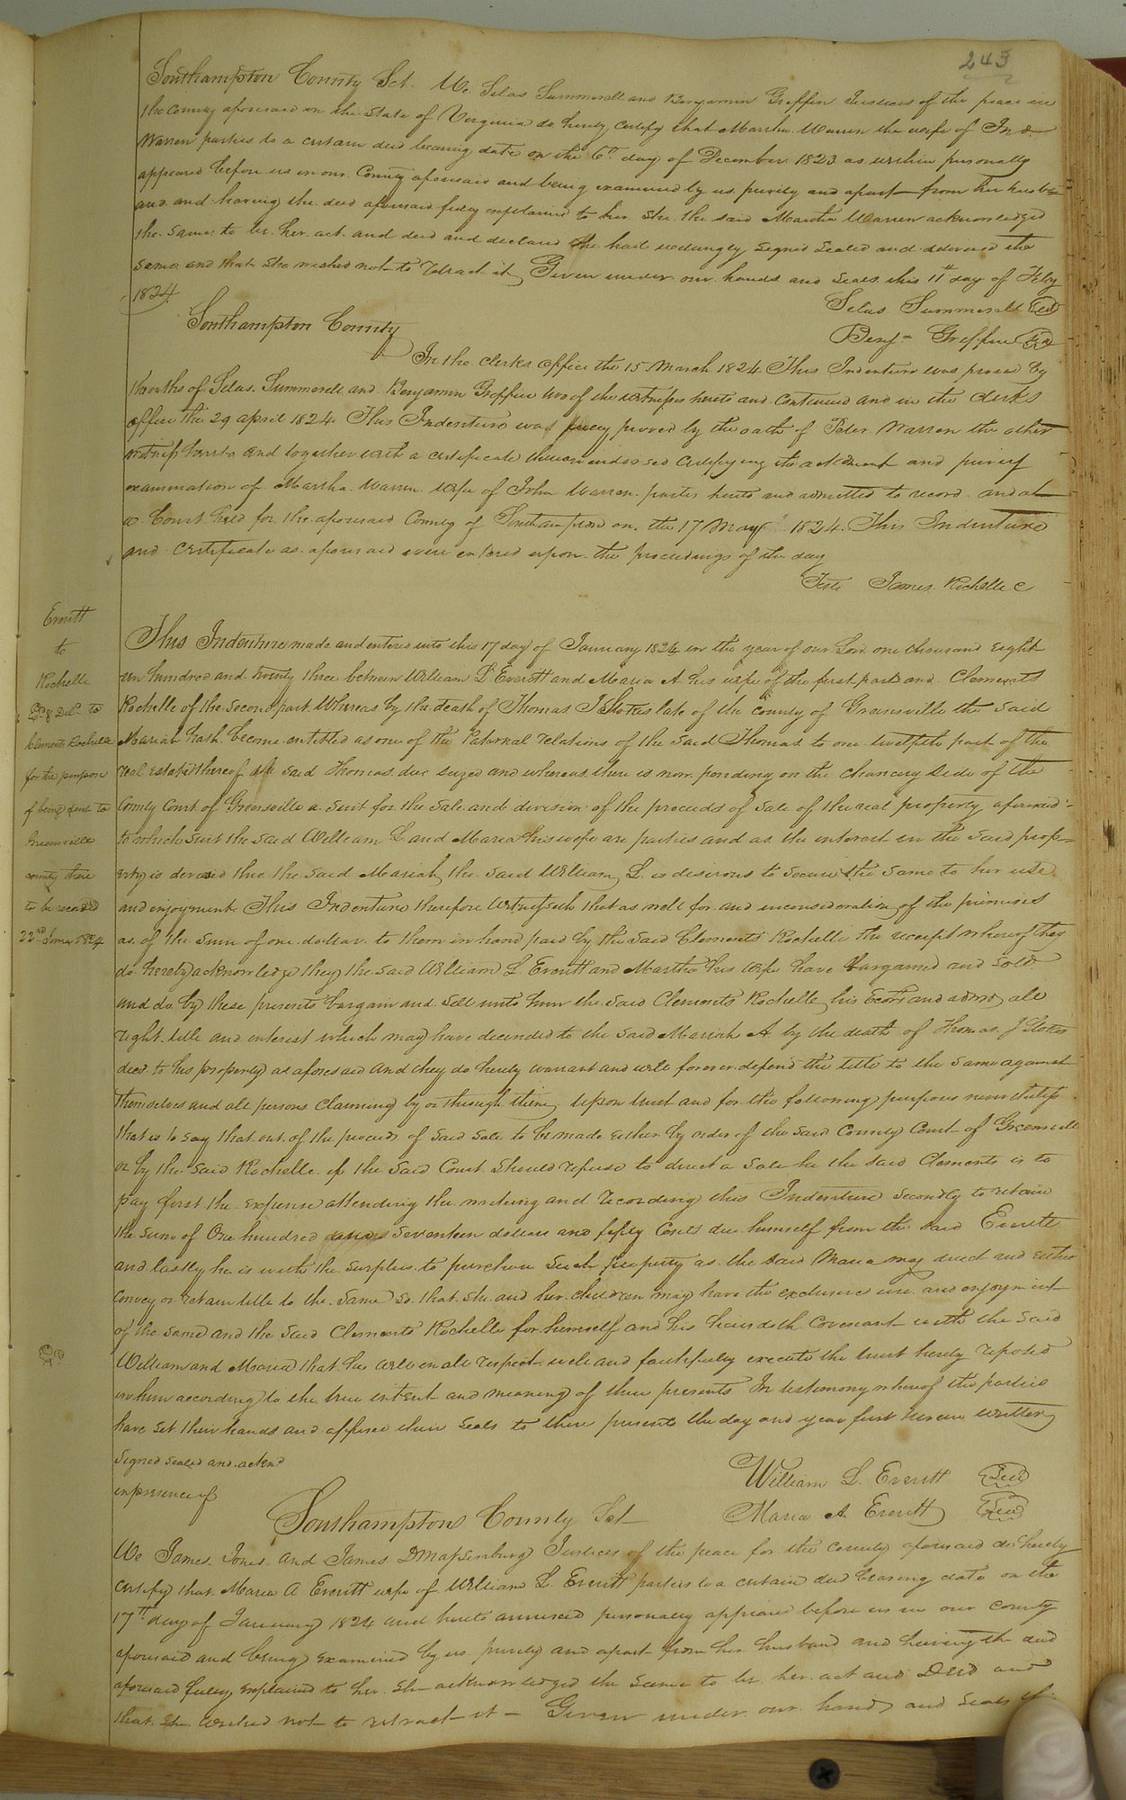 243
Southampton County Sct. We Silas Summerell and Benjamin Griffin Justices of the peace in
the County aforesaid in the State of Virginia do hereby Certify that Martha Warren the wife of Jno
Warren parties to a certain deed bearing date on the 6th day of December 1823 as within personally
appeared before us in our County aforesaid and being examined by us privily and apart from her husb
and and having the deed aforesaid fully explained to her She the said Martha Warren acknowledged
the same to be her act and deed and declared She had willingly signed sealed and delivered the
same and that she wished not to retract it Given under our hands and seals this 11th day of Feby
1824
Silas Summerell Seal
Benj= Griffin Seal
Southampton County
In the Clerks Office the 15 March 1824 This Indenture was proved by
the oaths of Silas Summerell and Benjamin Griffin two of the witnesses hereto and continued and in the clerks
office the 29 april 1824 This Indenture was fully proved by the oath of Peter Warren the other
witness hereto and together with a certificate thereon endorsed certifying the acknment and privy
examination of Martha Warren wife of John Warren parties hereto and admitted to record and at
a Court held for the aforesaid County of Southampton on the 17 May 1824. This Indenture
and certificate as aforesaid were entered upon the proceedings of the day
Teste James Rochelle C
Everitt
to
Rochelle
Ex & Deld to
Clements Rochelle
for the purpose
of being sent to
Greensville
county there
to be recorded
22nd June 1824
This Indenture made and entered into this 17 day of January 1824 in the year of our Lord one thousand eight
een hundred and twenty three between William L Everitt and Maria A his wife of the first part and Clements
Rochelle of the second part Whereas by the death of Thomas J Stokes late of the county of Greensville the said
Mariah hath become entitled as one of the Paternal relations of the said Thomas to one twelfth part of the
real estate thereof the said Thomas died seized and whereas there is now pending on the chancery side of the
County Court of Greensville a suit for the sale and division of the proceeds of sale of the real property aforesaid
to which suit the said William L and Maria his wife are parties and as the interest in the said prop=
erty is derived thro the said Mariah the said William L. is desirous to secure the same to her use
and enjoyment This Indenture therefore Witnesseth that as well for and in consideration of the premises
as of the sum of one dollar to them in hand paid by the said Clements Rochelle the receipt whereof they
do hereby acknowledge they the said William L Everitt and Martha his wife have bargained and sold
and do by these presents bargain and sell unto him the said Clements Rochelle his Ecors and admrs all
right title and interest which may have decended to the said Mariah A by the death of Thomas J Stokes
decd to his property as aforesaid and they do hereby warrant and will forever defend the title to the same against
themselves and all persons claiming by or through them Upon trust and for the following purposes nevertheless
that is to say that out of the proceeds of said sale to be made either by order of the said County Court of Greensvill
or by the said Rochelle if the said Court should refuse to direct a sale he the said Clements is to
pay first the expense attending the making and recording this Indenture secondly to retain
the sum of One hundred seventeen dollars and fifty Cents due himself from the said Everitt
and lastly he is with the surplus to purchase such property as the said Maria may direct and either
convey or retain title to the same so that she and her children may have the exclusive use and enjoyment
of the same and the said Clements Rochelle for himself and his heirs doth covenant with the said
William and Maria that he will in all respects well and faithfully execute the trust hereby reposed
in him according to the true intent and meaning of these presents In testimony whereof the parties
have set their hands and affixed their seals to these presents the day and year first herein written
Signed sealed and acknd
in presence of
William L. Everitt Seal
Maria A. Everitt Seal
Southampton County Sct
We James Jones and James D Massenburg Justices of the peace for the county aforesaid do hereby
certify that Maria A Everitt wife of William L. Everitt parties to a certain deed bearing date on the
17th day of January 1824 and hereto annexed personally appeared before us in our county
aforesaid and being examined by us privily and apart from her husband and having the deed
aforesaid fully explained to her She acknowledged the same to be her act and Deed and
that she wished not to retract it - Given under our hands and seals this